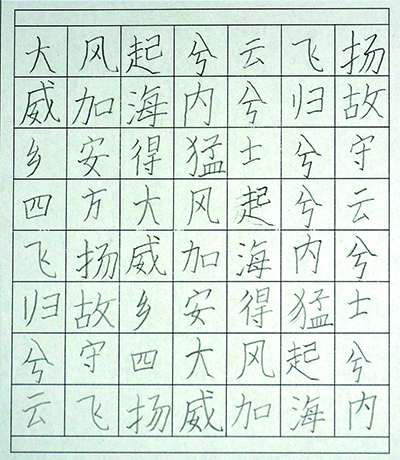 大风起兮云飞扬
威加海内兮归故
乡安得猛士兮守
四方大风起兮云
飞扬威加海内兮
归故乡安得猛士
兮守四大风起兮
云飞扬威加海内